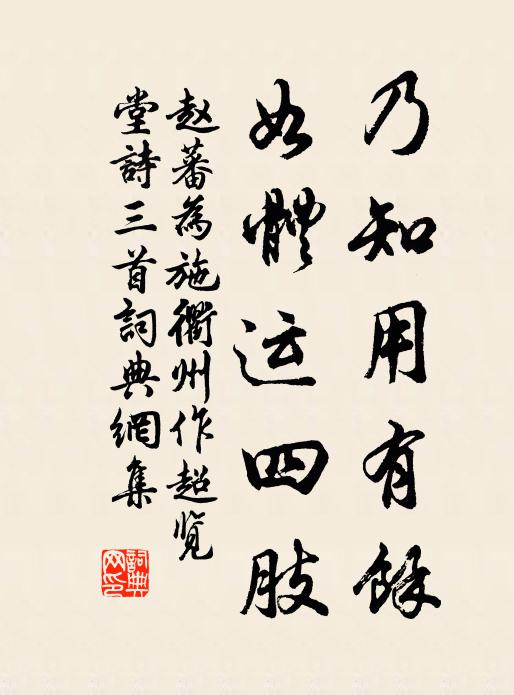 乃知用有餘
如體运四肢
赵蕃為施衢州作超览
堂詩三首詞典網集
詞典
网印